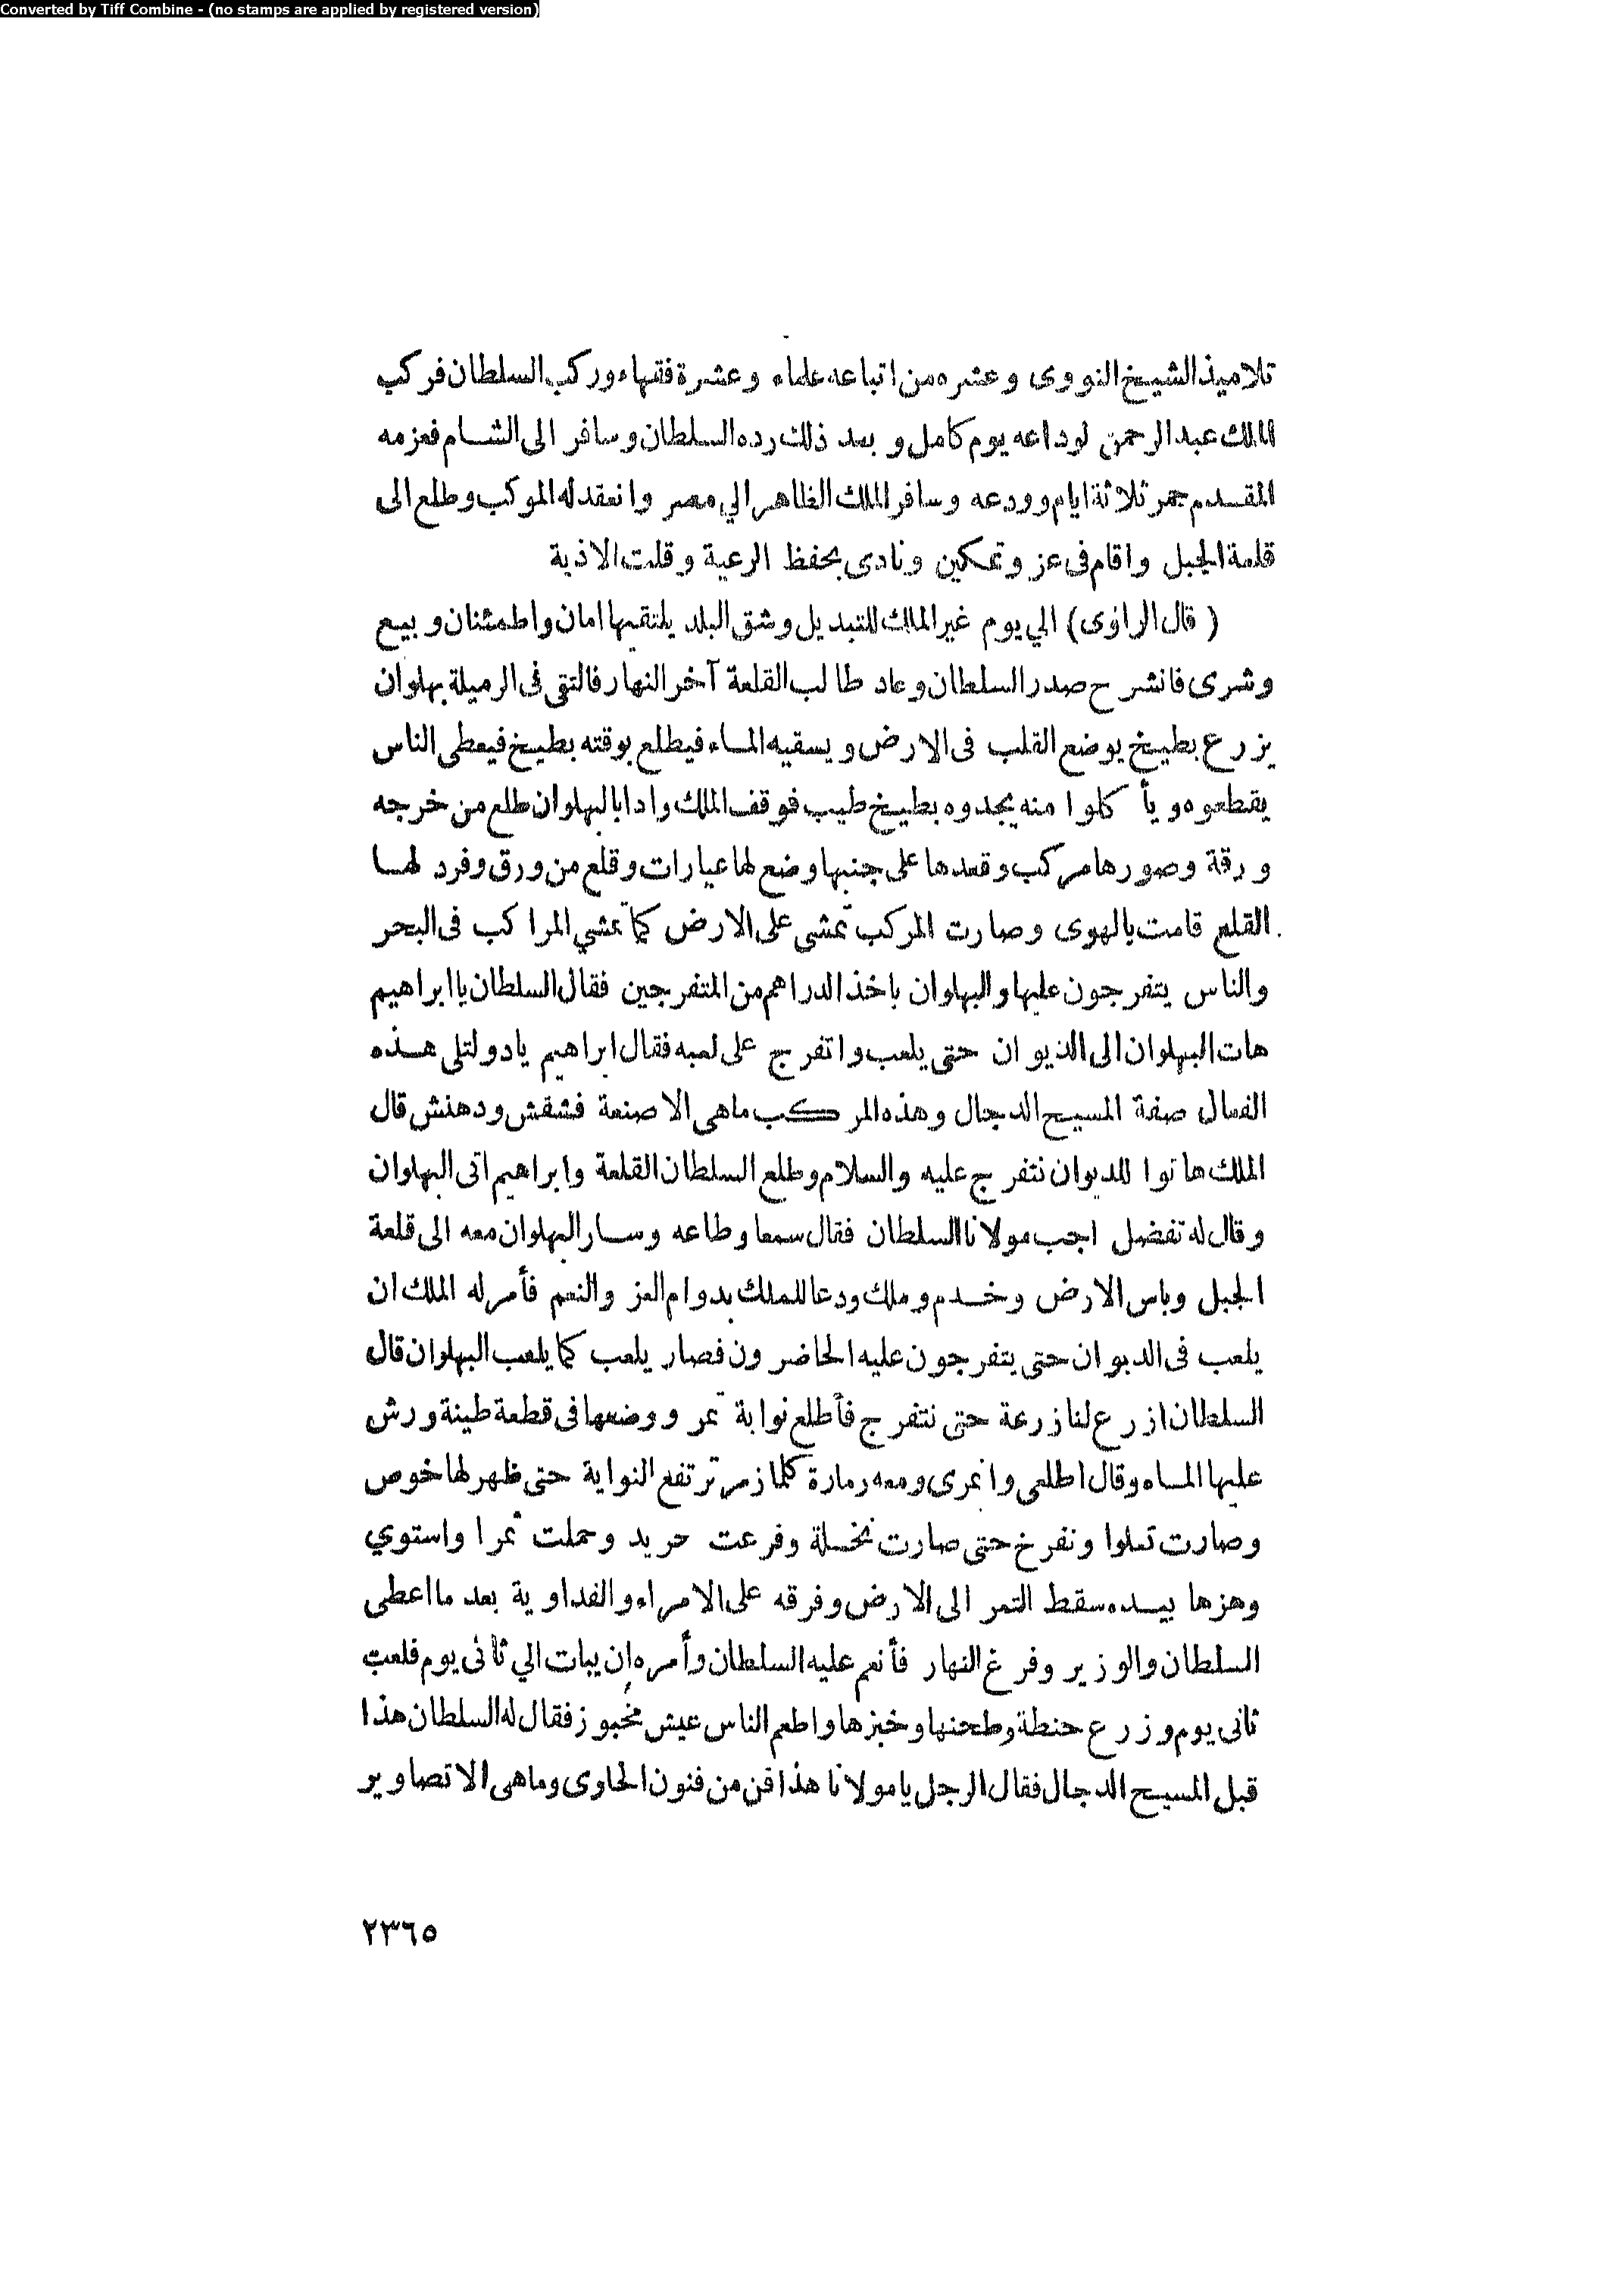 Converted by Tiff Combine - (no stamps are applied by registered version)
تلاميذ الشيخ النووى وعشره من اتباعه علماء وعشرة فقهاء وركب السلطان فركب
الملك عبد الرحمن لوداعه يوم كامل و بعد ذلك رده السلطان وسافر الى الشام فعزمه
المقدم جمر ثلاثة ايام وودعه وسافر الملك الظاهر الي مصر وانعقد له الموكب وطلع الى
قلعة الجبل واقام فى عز وتمكين ونادى بحفظ الرعية وقلت الاذية
( قال الراوى) الي يوم غير الملك للتبديل وشق البلد يلتقيها امان واطمئنان وبيع
وشرى فانشرح صدر السلطان وعاد طالب القلعة آخر النهار فالتقى فى الرميلة بهلوان
يزرع بطيخ يوضع القلب فى الارض ويسقيه الماء فيطلع بوقته بطيخ فيعطى الناس
يقطعوه ويأكلوا منه يجدوه بطيخ طيب فوقف الملك واذا بالبهلوان طلع من خرجه
ورقة وصورها مركب وقعدها على جنبها وضع لها عيارات وقلع من ورق وفرد لها
القلع قامت بالهوى وصارت المركب تمشى على الارض كما تمشي المراكب فى البحر
والناس يتفرجون عليها والبهلوان ياخذ الدراهم من المتفرجين فقال السلطان يا ابراهيم
هات البهلوان الى الديوان حتى يلعب واتفرج على لعبه فقال ابراهيم يادولتلى هذه
الفعال صفة المسيح الدجال وهذه المركب ماهى الا صنعة فشقش ودهنش قال
الملك هاتوا للديوان نتفرج عليه والسلام وطلع السلطان القلعة وابراهيم اتى البهلوان
وقال له تفضل اجب مولانا السلطان فقال سمعا وطاعه وسار البهلوان معه الى قلعة
الجبل وباس الارض وخدم وملك ودعا للملك بدوام العز والنعم فأمر له الملك ان
يلعب فى الديوان حتى يتفرجون عليه الحاضرون فصار يلعب كما يلعب البهلوان قال
السلطان ازرع لنا زرعة حتى نتفرج فأطلع نواية تمر ووضعها فى قطعة طينة ورش
عليها الماء وقال اطلعى واتمرى ومعه زمارة كلما زمر ترتفع النواية حتى ظهر لها خوص
وصارت تعلوا وتفرخ حتى صارت نخلة وفرعت جريد وحملت تمرا واستوي
وهزها بيده سقط التمر الى الارض وفرقه على الامراء والفداوية بعد ما اعطى
السلطان والوزير وفرغ النهار فأنعم عليه السلطان وأمره إن يبات الي ثانى يوم فلعب
ثانى يوم وزرع حنطة وطحنها وخبزها واطعم الناس عيش مخبوز فقال له السلطان هذا
قبل المسيح الدجال فقال الرجل يا مولانا هذا فن من فنون الحاوى وماهى الا تصاوير
٢٣٦٥